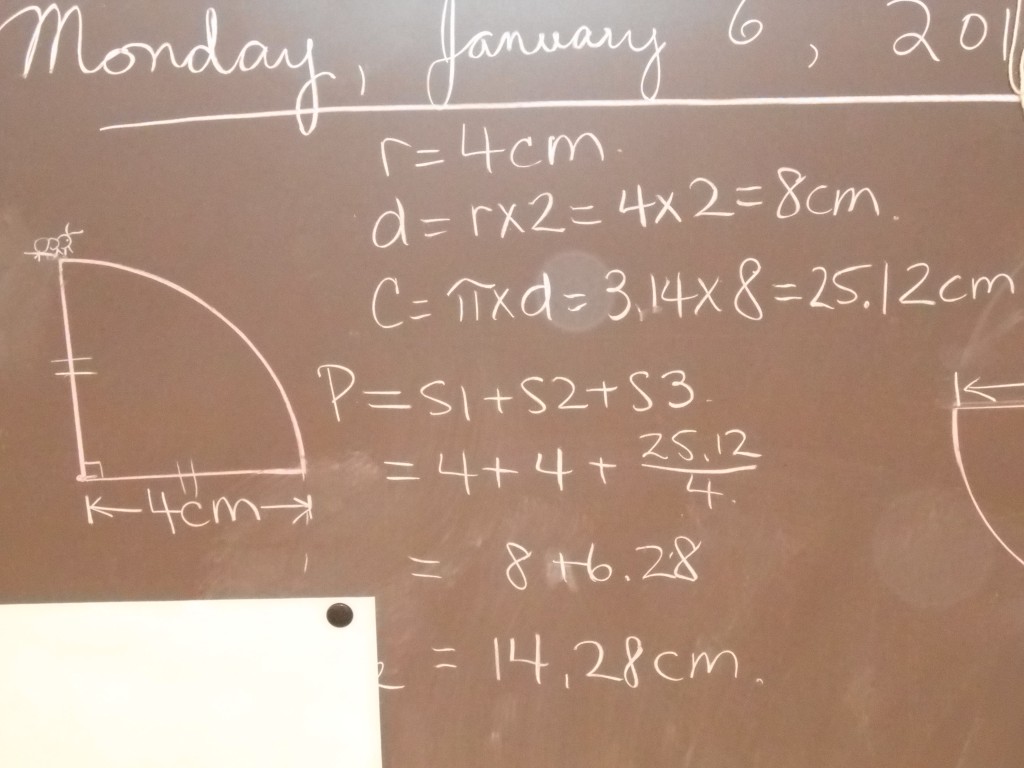 Monday, January 6, 201
r = 4cm.
d = r x 2 = 4 x 2 = 8cm.
C = π x d = 3.14 x 8 = 25.12cm
P = S1 + S2 + S3.
= 4 + 4 + 25.12/4.
4cm
= 8 + 6.28
= 14.28cm.